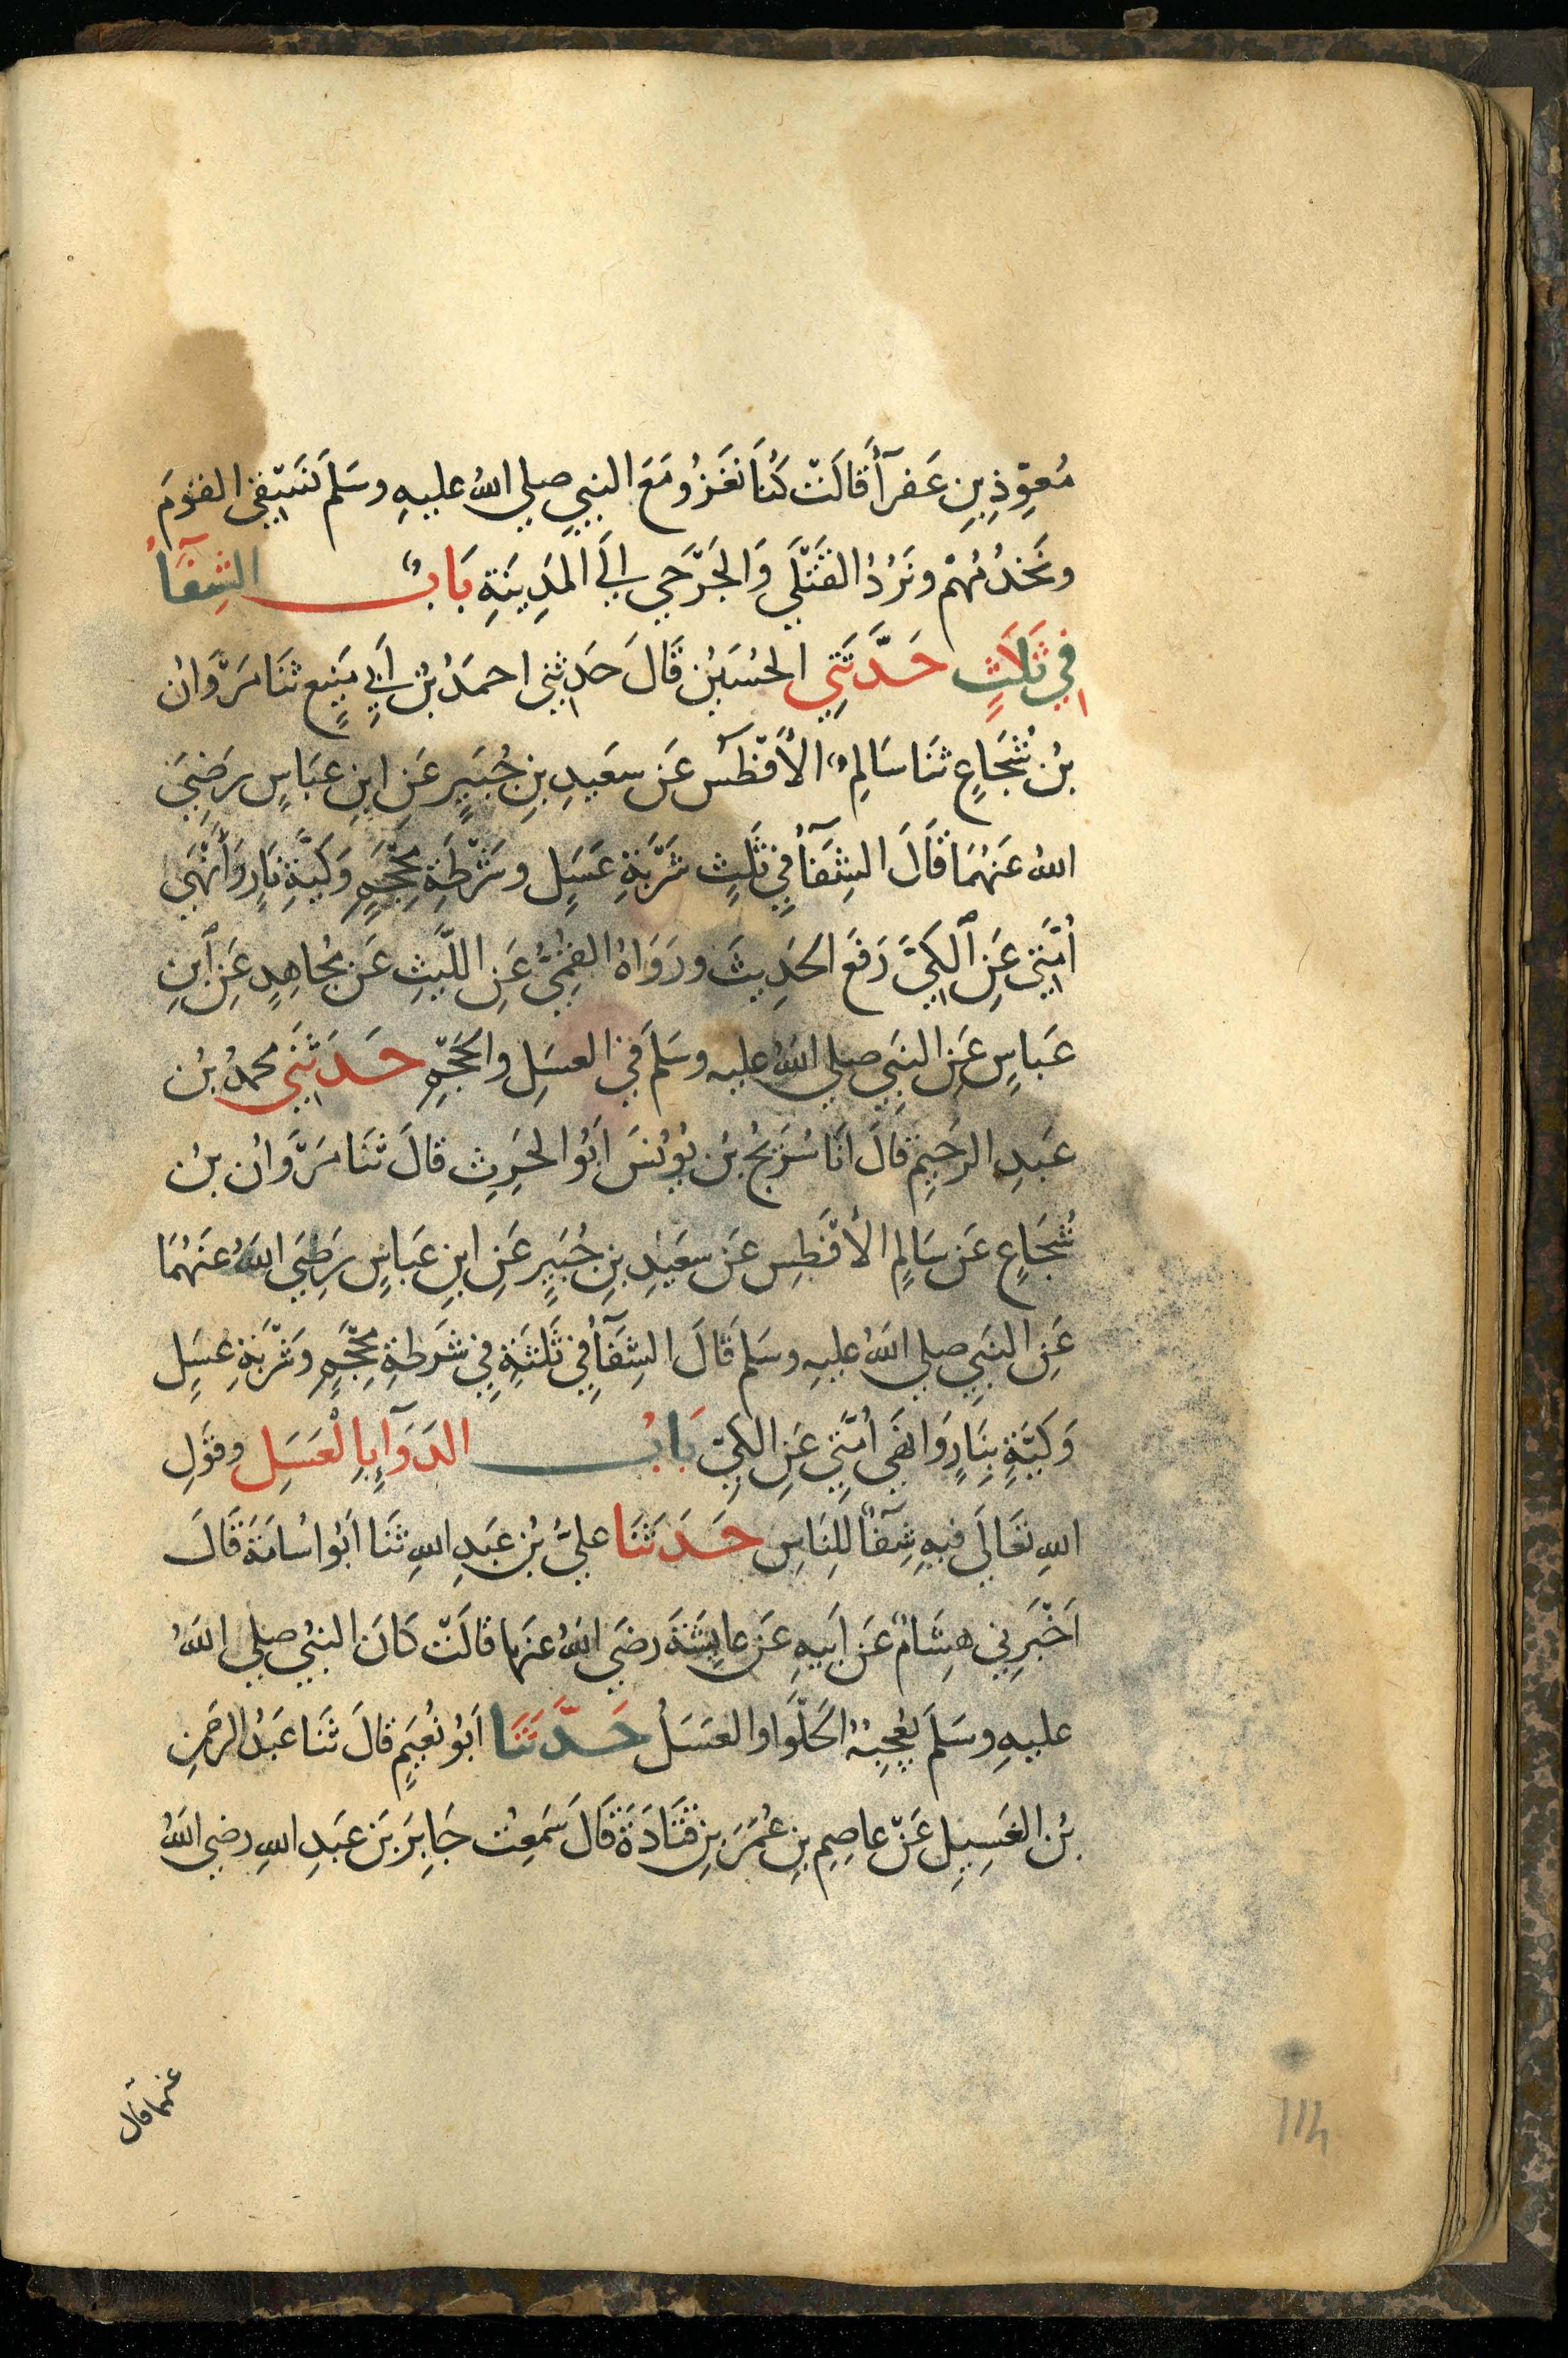 مُعَوِّذِ بنِ عَفرآءَ قَالَتْ كُنَا نَغزُو مَعَ النبيِ صلي اللهُ عليهِ وسَلم نَسَتْقِي القومَ
ونَخدُمُهُمْ ونَرُدُ القَتْلَي وَالجَرْحَي اِلَي المَدِينَةِ بَابُ الشِفَآءُ
فِي ثَلَاثٍ حَدَّثَنِي الحُسَيْن قَالَ حَدثنِي احمَدُ بْنُ اَبِي مَنِيعٍ ثَنَا مَرْوَانُ
بْن شُجَاعٍ ثَنَا سَالِم الأَفْطَسُ عَن سعَيدِ بنِ جُبَيرٍ عَنِ ابنِ عبَاسٍ رضِيَ
اللهُ عَنهُمَا قَالَ الشِفَآءُ فِي ثَلَثٍ شَرْبَةِ عَسَلٍ وشَرْطَةِ مِحْجَمٍ وَكَيَّةِ نَارٍ وَأَنْهَي
اُمَّتِي عَنِ ٱلكَيِّ رَفَعَ الحَدِيثَ ورَوَاهُ القُمِّيُّ عَنِ اللَّيثِ عَن مُجَاهِدٍ عَنِ ٱبنِ
عَباسٍ عَنِ النبَيِ صلي اللهُ عليه وسَلَم فِي العسَلِ والحَجْمِ حَدَثَنِي محمدُ بْن
عَبدِ الرحَيمِ قالَ انَا سُرَيجُ بْن يُونُسَ اَبُو الحَرِثِ قالَ ثَنَا مَرْوَانُ بنُ
شُجَاعٍ عَن سَالِمٍ الأَفْطَسِ عَن سعَيدِ بنِ جُبَيرٍ عَنِ ابنِ عَباسٍ رَضِيَ اللهُ عَنهُمَا
عَنِ النبَيِ صلي اللهُ عليهِ وسَلم قَالَ الشِفَآءُ فِي ثَلَثَةٍ فِي شَرطَةِ مِحْجَمٍ وَشَرْبَةِ عسَلٍ
وَكَيَّةٍ بِنَارٍ وَانهَي اُمَّتِي عَنِ الكَيِّ بَابُ الدَوَآءِ بِالْعَسَلِ وقَولِ
اللهِ تعَالَي فيهِ شِفَآءٌ للِنَاسِ حَدَثَنَا عليُّ بْن عَبدِ اللهِ ثَنَا اَبُو اسُامَةَ قَالَ
اَخْبَرِني هِشَامٌ عَن اَبيهِ عَن عايِشَةَ رضَي اللهُ عنهَا قالَتْ كَانَ النبيُ صلي اللهُ
عليهِ وسَلَم يُعجِبُهُ الحَلْوَا والعَسَلُ حَدَّثَنَا اَبُو نُعَيمٍ قالَ ثَنَا عَبدُ الرحمَنِ
بْن الغَسِيلِ عَنْ عاصِمِ بنِ عُمَرَ بنِ قتَادَةَ قَالَ سَمِعتُ جَابِرَ بَن عبَدِ اللهِ رضي اللهُ
عنهما قال
114